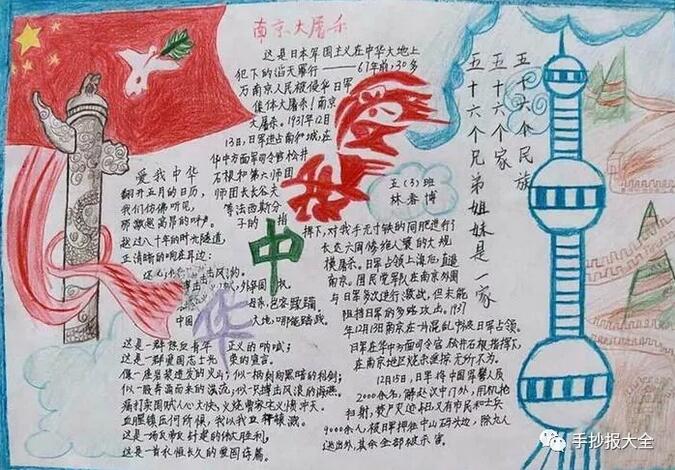 南京大屠杀
这是日本军国主义在中华大地上
犯下的滔天罪行——67年前,30多
万南京人民被侵华日军
集体大屠杀!南京
大屠杀。1937年12月
13日,日军进占南京城,在
华中方面军司令官松井
石根和第六师团
师团长谷夫
等法西斯分
子的指
挥下,对我手无寸铁的同胞进行
长达六周惨绝人寰的大规
模屠杀。日军占领上海后,直逼
南京。国民党军队在南京外围
与日军多次进行激战,但未能
阻挡日军的多路攻击。1937
年12月13日南京在一片混乱中被日军占领。
日军在华中方面军司令官松井石根指挥下,
在南京地区烧杀淫掠无所不为。
12月15日,日军将中国军警人员
2000余名,解赴汉中门外,用机枪
扫射,焚尸灭迹。同日,又有市民和士兵
9000余人,被日军押往
余全部被杀害
爱我中华
翻开五月的日历,
我们仿佛听见,
那激越高昂的呐喊
越过八十年的时光隧道,
正清晰的响在耳边:
中国
大地,哪能践踏
这是一群热血青年正义的呐喊;
这是一群爱国志士光荣的宣言。
像一座岩浆迸发的火山;似一柄刺向黑暗的利剑;
似一股奔涌而来的洪流;似一只搏击风浪的海燕。
痛打卖国贼人心大快,火烧曹家宅义愤冲天。
血腥镇压何所惧,我以我血荐轩辕。
这是一场反帝反封建的伟大胜利,
这是一首永恒长久的爱国诗篇。
爱我
中
华
五(3)班
林春博
五十六个民族
五十六个家
五十六个兄弟姐妹是一家
手抄报大全